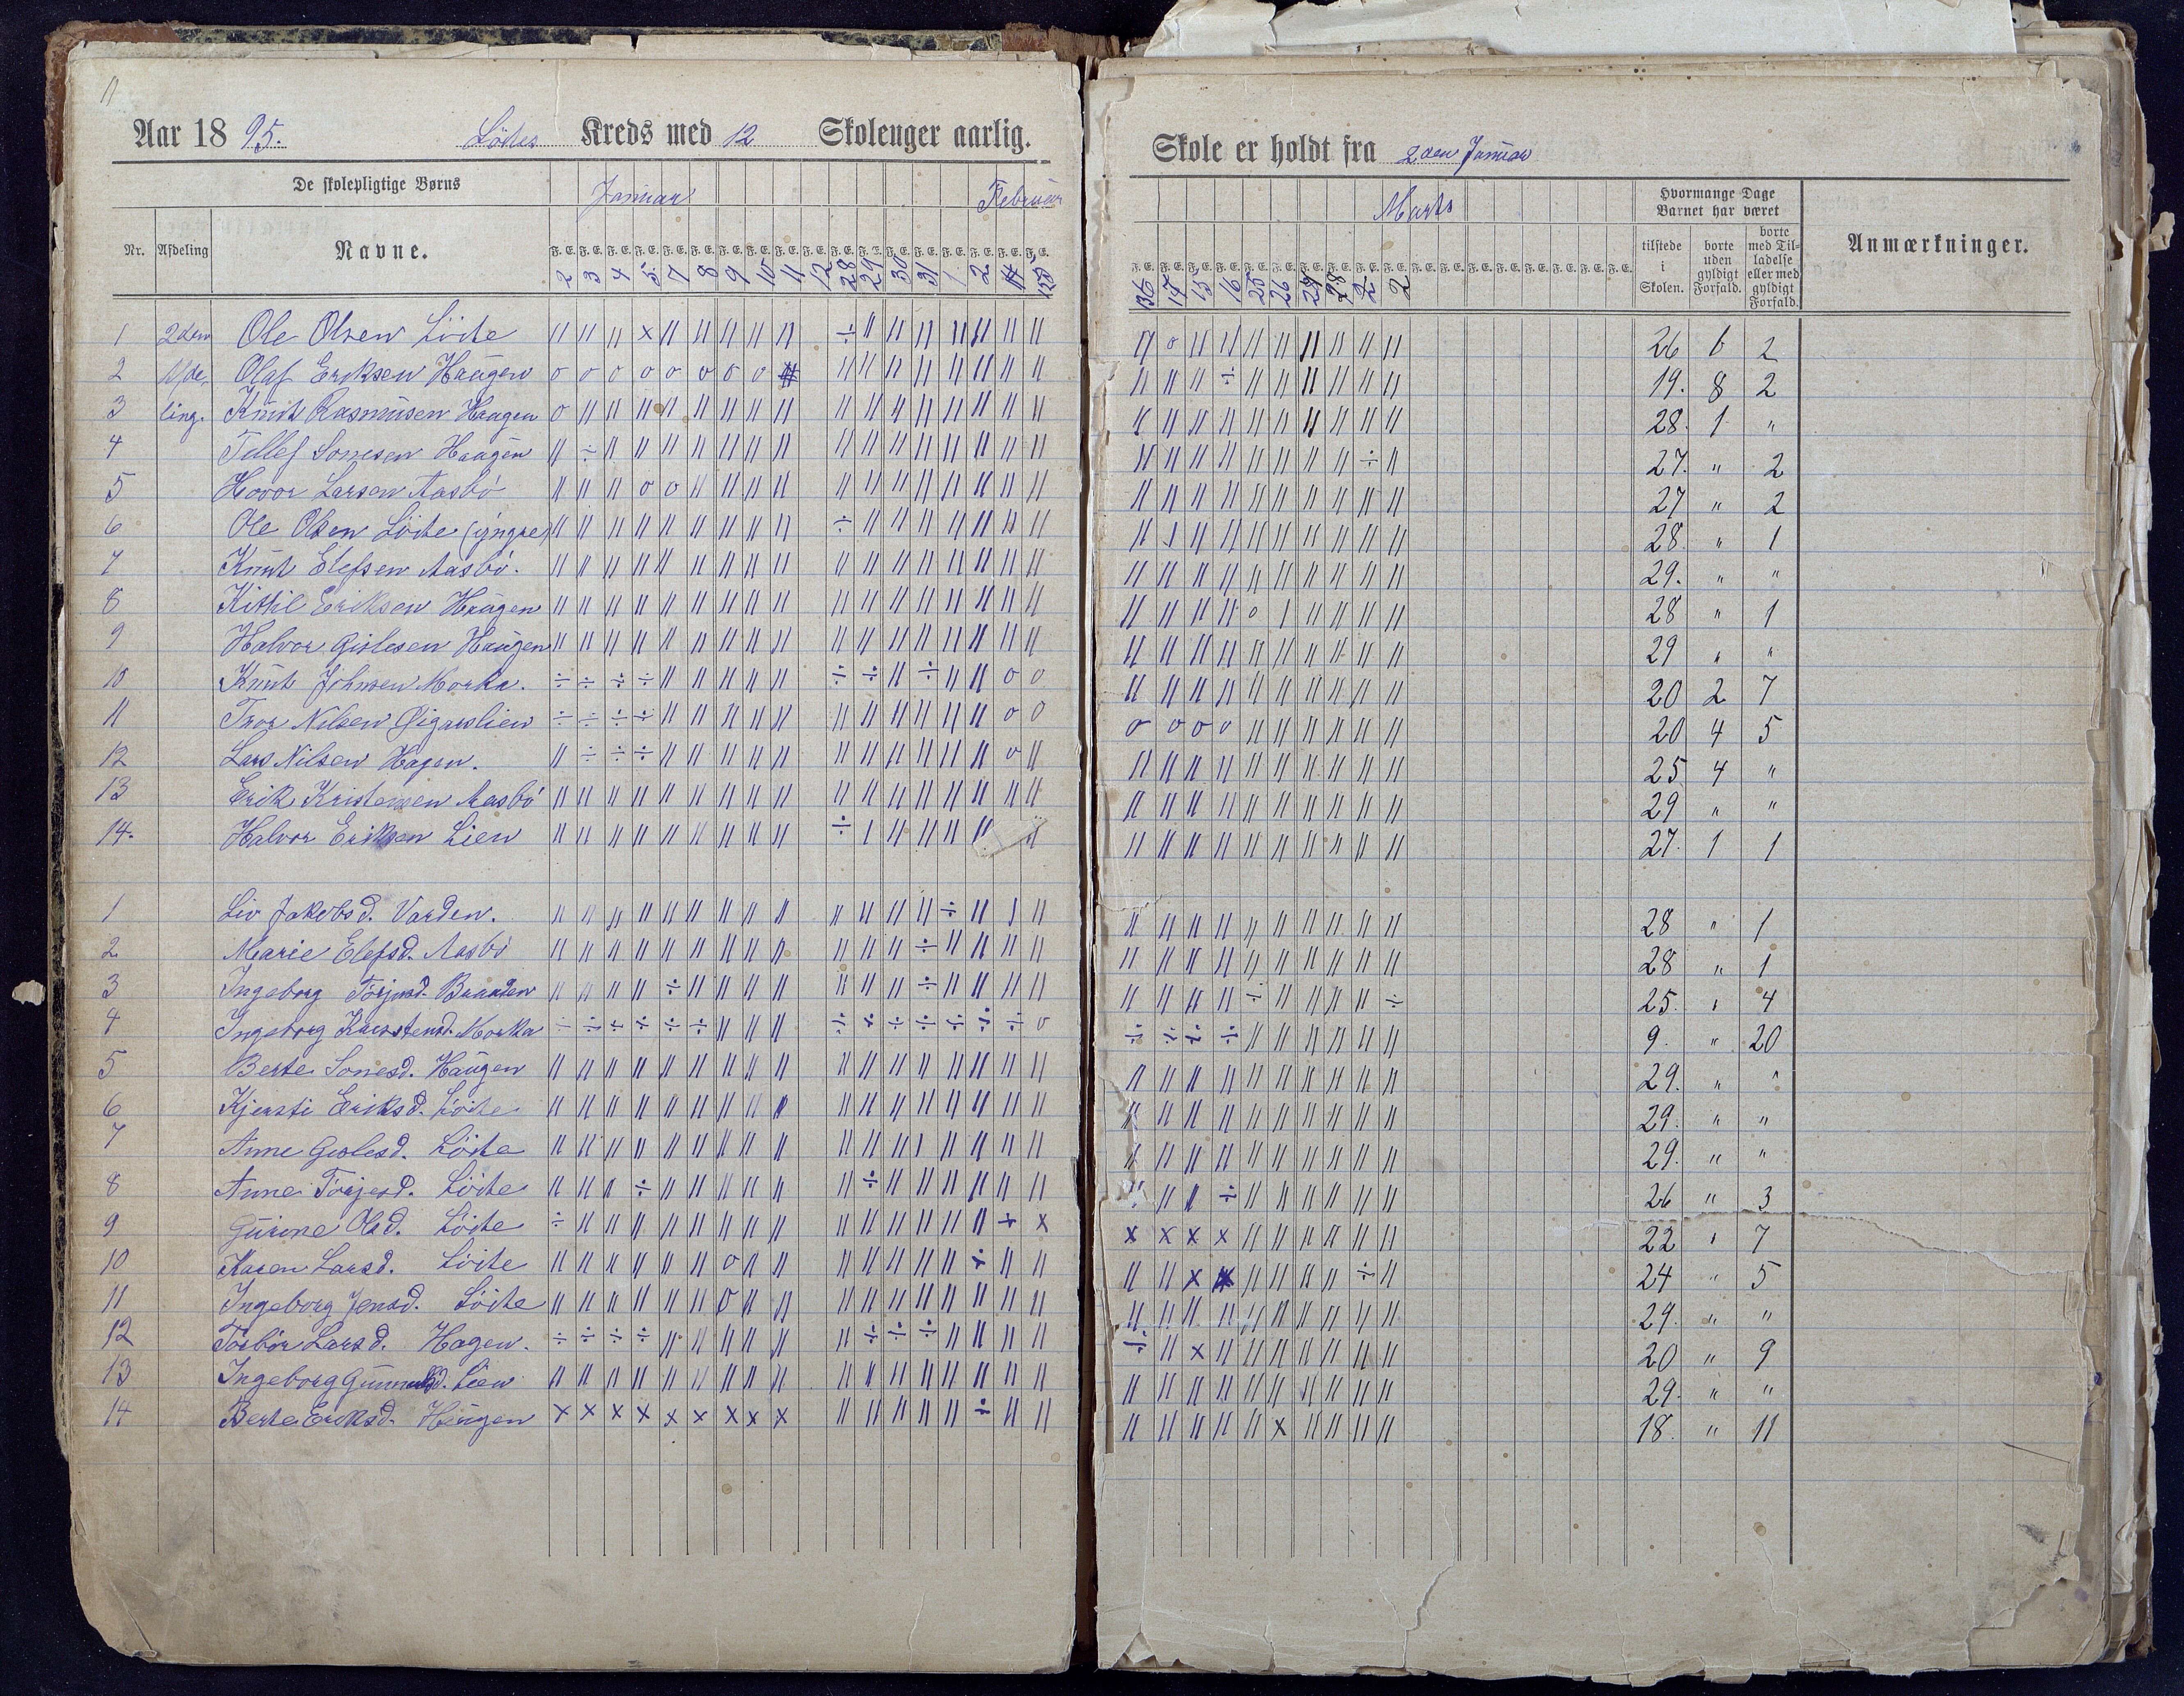 11
Aar 1895. Löites Kreds med 12 Skolenger aarlig.
De skolepligtige Børns
Januar Februar
Nr. Afdeling Navne. F. E. F. E. F. E. F. E. F. E. F. E. F. E. F. E. F. E. F. E. F. E. F. E. F. E. F. E. F. E. F. E. F. E. F. E.
2 3 4 5 7 8 9 10 11 12 28 29 30 31 1 2
1 2den Ole Olsen Löite
2 Afde- Olaf Eriksen Haugen
3 ling. Knut Rasmusen Haugen
4 Tellef Sonesen Haugen
5 Hovor Larsen Aasbö
6 Ole Olsen Löite (yngre)
7 Knut Elefsen Aasbö.
8 Kittil Eriksen Haugen
9 Halvor Gislesen Haugen
10 Knut Johnsen Morka.
11 Tror Nilsen Øigarslien
12 Lars Nilsen Hagen.
13 Erik Kristensen Aasbö
14. Halvor Eriksen Lien
1 Liv Jakobsd. Varden.
2 Marie Elefsd. Aasbö
3 Ingeborg Torjusd. Braaten
4 Ingeborg Karstensd. Morka
5 Berte Sonesd. Haugen
6 Kjersti Eriksd. Löite
7 Anne Gislesd. Löite
8 Anne Torjesd. Löite
9 Gurine Olsd. Löite
10 Karen Larsd. Löite
11 Ingeborg Jensd. Löite
12 Torbör Larsd. Hagen.
13 Ingeborg Lien
14 Berte Eriksd. Haugen
Skole er holdt fra 2den Januar
Marts
Hvormange Dage Barnet har været
tilstede i Skolen. borte uden gyldigt Forfald. borte med Tilladelse eller med gyldigt Forfald. Anmærkninger.
F. E. F. E. F. E. F. E. F. E. F. E. F. E. F. E. F. E. F. E. F. E. F. E. F. E. F. E. F. E. F. E. F. E.
14 15 16 25 26
26 6 2
19. 8 2
28. 1 "
27. " 2
27 " 2
28. " 1
29. " "
28 " 1
29 " "
20 2 7
20 4 5
25 4 "
29 " "
27. 1 1
28 " 1
28 " 1
25. " 4
9. " 20
29. " "
29. " "
29. " "
26 " 3
22 " 7
24 " 5
29. " "
20 " 9
29. " "
18. " 11